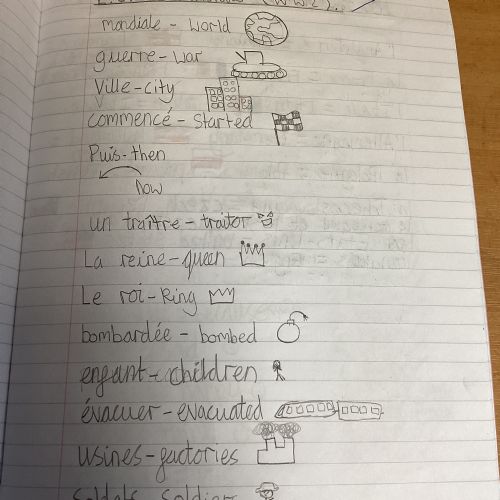 (WW2).
mondiale - world
guerre - war
Ville - city
commencé - started
Puis - then
now
un traître - traitor
La reine - queen
Le roi - King
bombardée - bombed
enfant - children
évacuer - evacuated
usines - factories
soldats - soldier